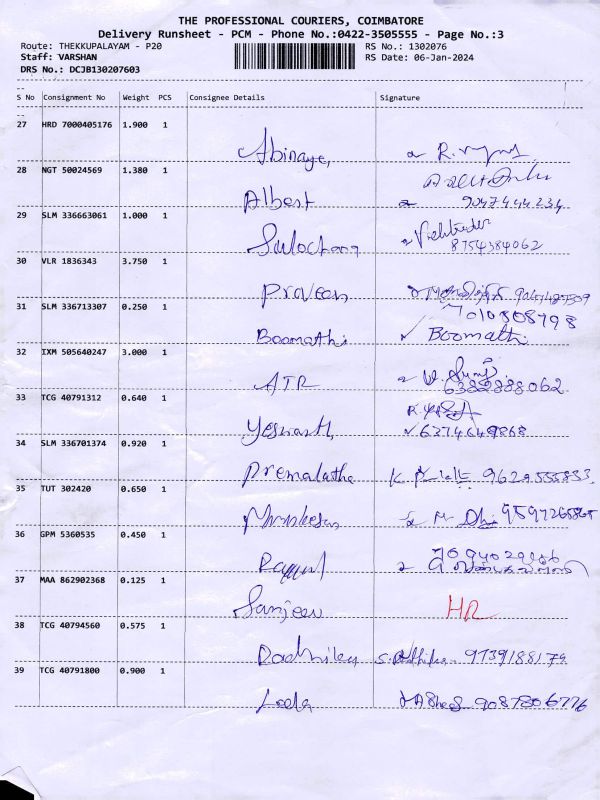 THE PROFESSIONAL COURIERS, COIMBATORE
Delivery Runsheet - PCM - Phone No.:0422-3505555 - Page No.:3
Route: THEKKUPALAYAM - P20 RS No.: 1302076
Staff: VARSHAN RS Date: 06-Jan-2024
DRS No.: DCJB130207603
S No Consignment No Weight PCS Consignee Details Signature
27 HRD 7000405176 1.900 1
Abinaya,
28 NGT 50024569 1.380 1
Albest 9047444234
29 SLM 336663061 1.000 1
Sulochana
8754384062
30 VLR 1836343 3.750 1
Praveen
31 SLM 336713307 0.250 1
7010808798
Boomathi Boomathi
32 IXM 505640247 3.000 1
ATR
6382888062
33 TCG 40791312 0.640 1
Yeswanth 6374649868
34 SLM 336701374 0.920 1
Premalatha K 9629555833
35 TUT 302420 0.650 1
Murukesan
36 GPM 5360535 0.450 1
37 MAA 862902368 0.125 1
Sanjeev HR
38 TCG 40794560 0.575 1
39 TCG 40791800 0.900 1
Leela 9087806776